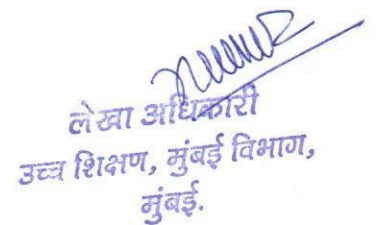 लेखा अधिकारी
उच्च शिक्षण, मुंबई विभाग,
मुंबई.